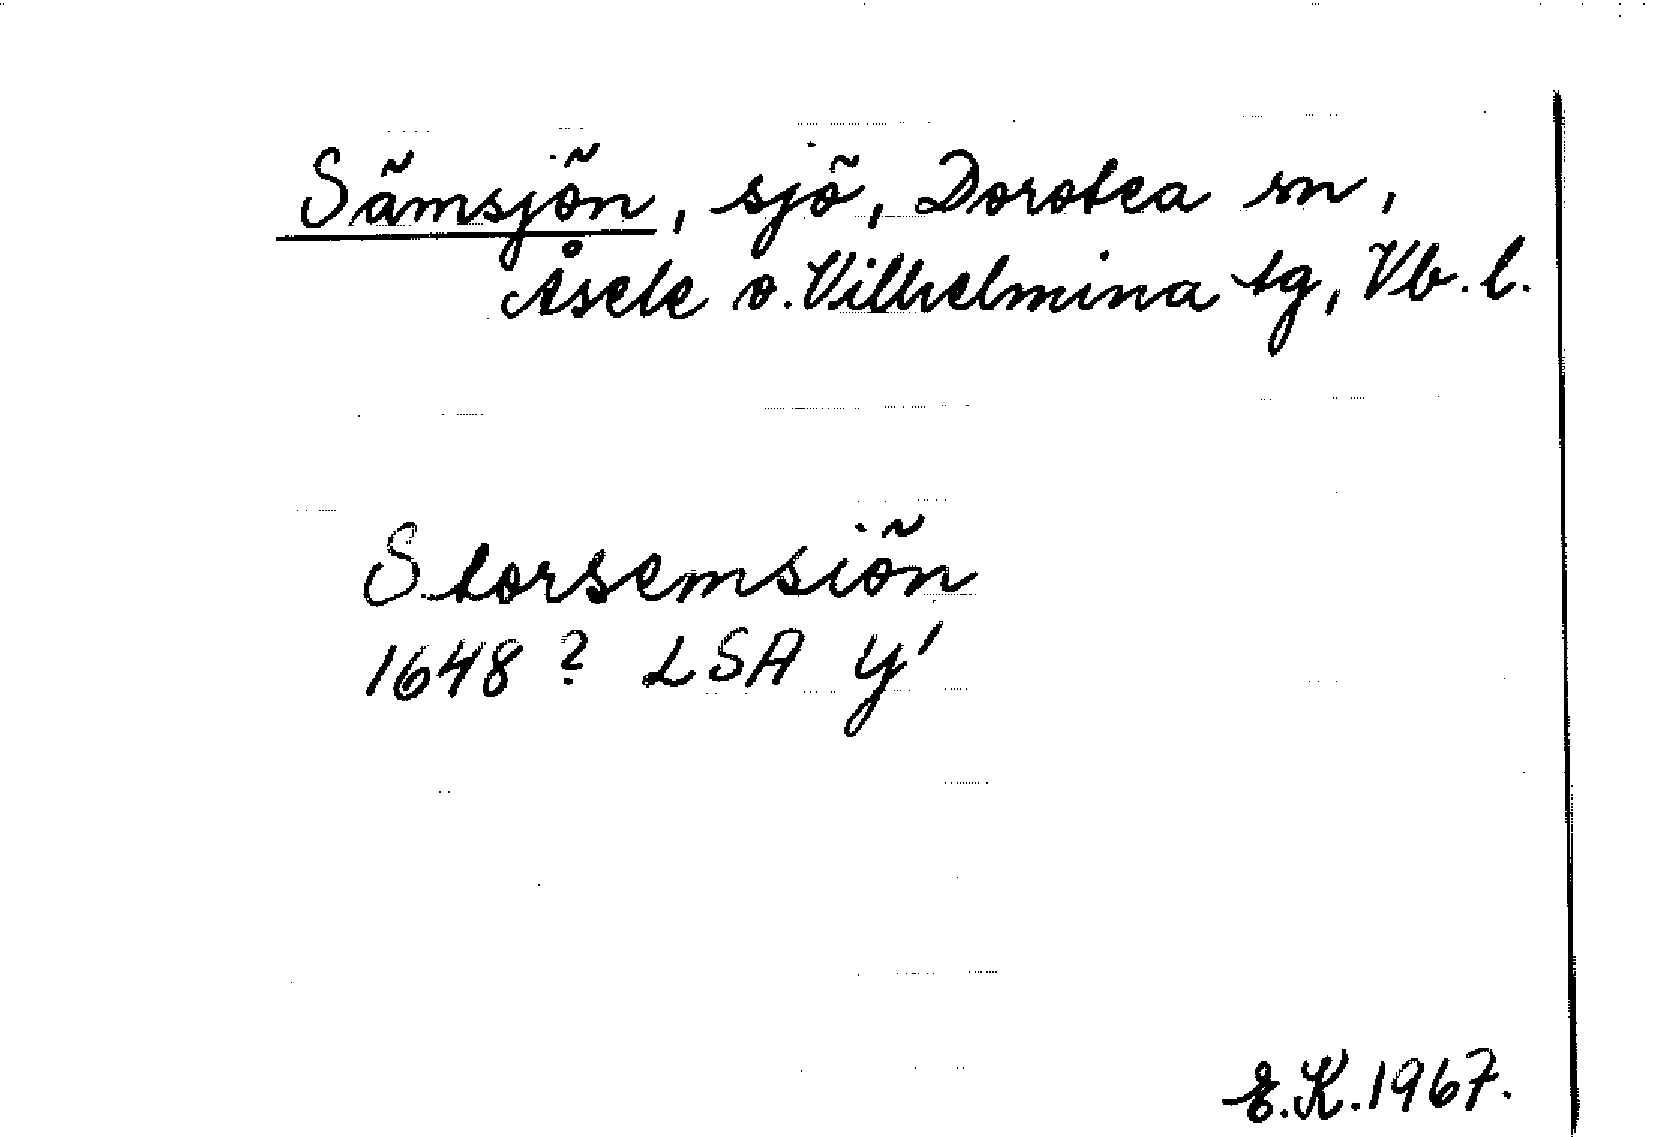 Sämsjön, sjö, Dorotea sn,
Åsele o. Vilhelmina tg, Vb. l.
Storsemsiön
1648? LSA Y'
E.K. 1967.